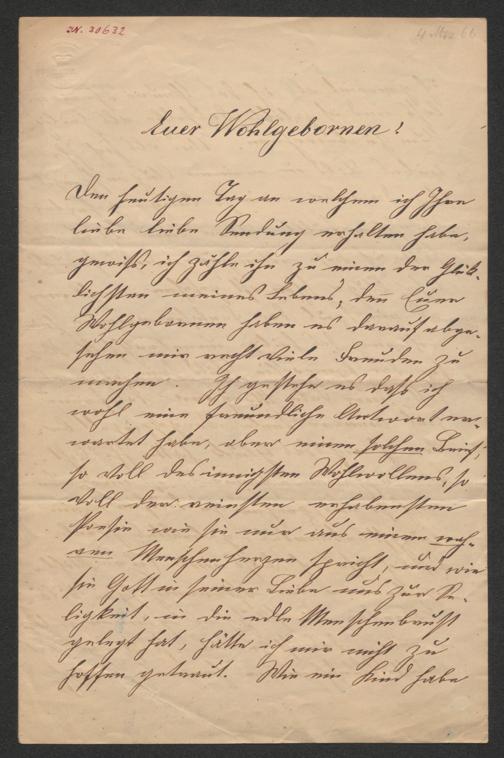 IN. 30632
4 Mrz 66
Euer Wohlgebornen!
Den heutigen Tag an welchem ich Ihre
liebe liebe Sendung erhalten habe,
gewiß, ich zähle ihn zu einem der Glück-
lichsten meines Lebens, den Euer
Wohlgebornen haben es darauf abge-
sehen mir recht viele Freuden zu
machen. Ich gestehe es daß ich
wohl eine freundliche Antwort er-
wartet habe, aber einen solchen Brief,
so voll des innigsten Wohlwollens, so
voll der reinsten erhabensten
Poesie wie sie nur aus einem wah-
ren Menschenherzen spricht, und wie
sie Gott in seiner Liebe uns zur Se-
ligkeit, in die edle Menschenbrust
gelegt hat, hätte ich mir nicht zu
hoffen getraut. Wie ein Kind habe